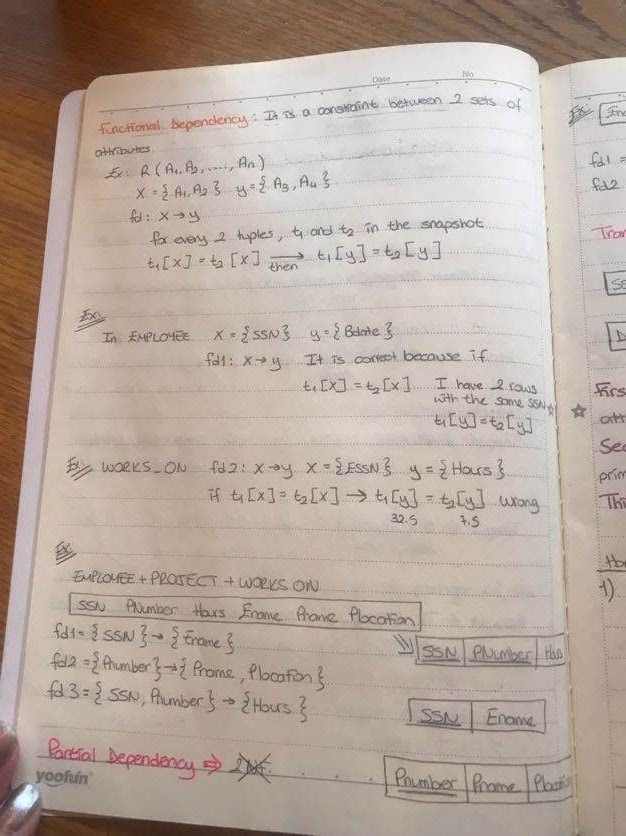 Date No
Functional Dependency: It is a constraint between 2 sets of
attributes.
Ex: R(A1, A2, ...., An)
X = {A1, A2} y = {A3, A4}
fd: X → y
for every 2 tuples, t1 and t2 in the snapshot
t1[X] = t2[X] → then t1[y] = t2[y]
Ex:
In EMPLOYEE X = {SSN} y = {Bdate}
fd1: X → y It is correct because if
t1[X] = t2[X] I have 2 rows
with the same SSN
t1[y] = t2[y]
Ex: WORKS_ON fd2: X → y X = {ESSN} y = {Hours}
if t1[X] = t2[X] → t1[y] = t2[y] wrong
32.5 7.5
Ex:
EMPLOYEE + PROJECT + WORKS ON
SSN PNumber Hours Ename Pname Plocation
fd1 = {SSN} → {Ename}
fd2 = {Pnumber} → {Pname, Plocation}
fd3 = {SSN, Pnumber} → {Hours}
SSN PNumber Hou
SSN Ename
Partial Dependency ⇒
Pnumber Pname Plocation
yoofun
Ex:
fd1 =
fd2
Firs
Sec
prim
1)